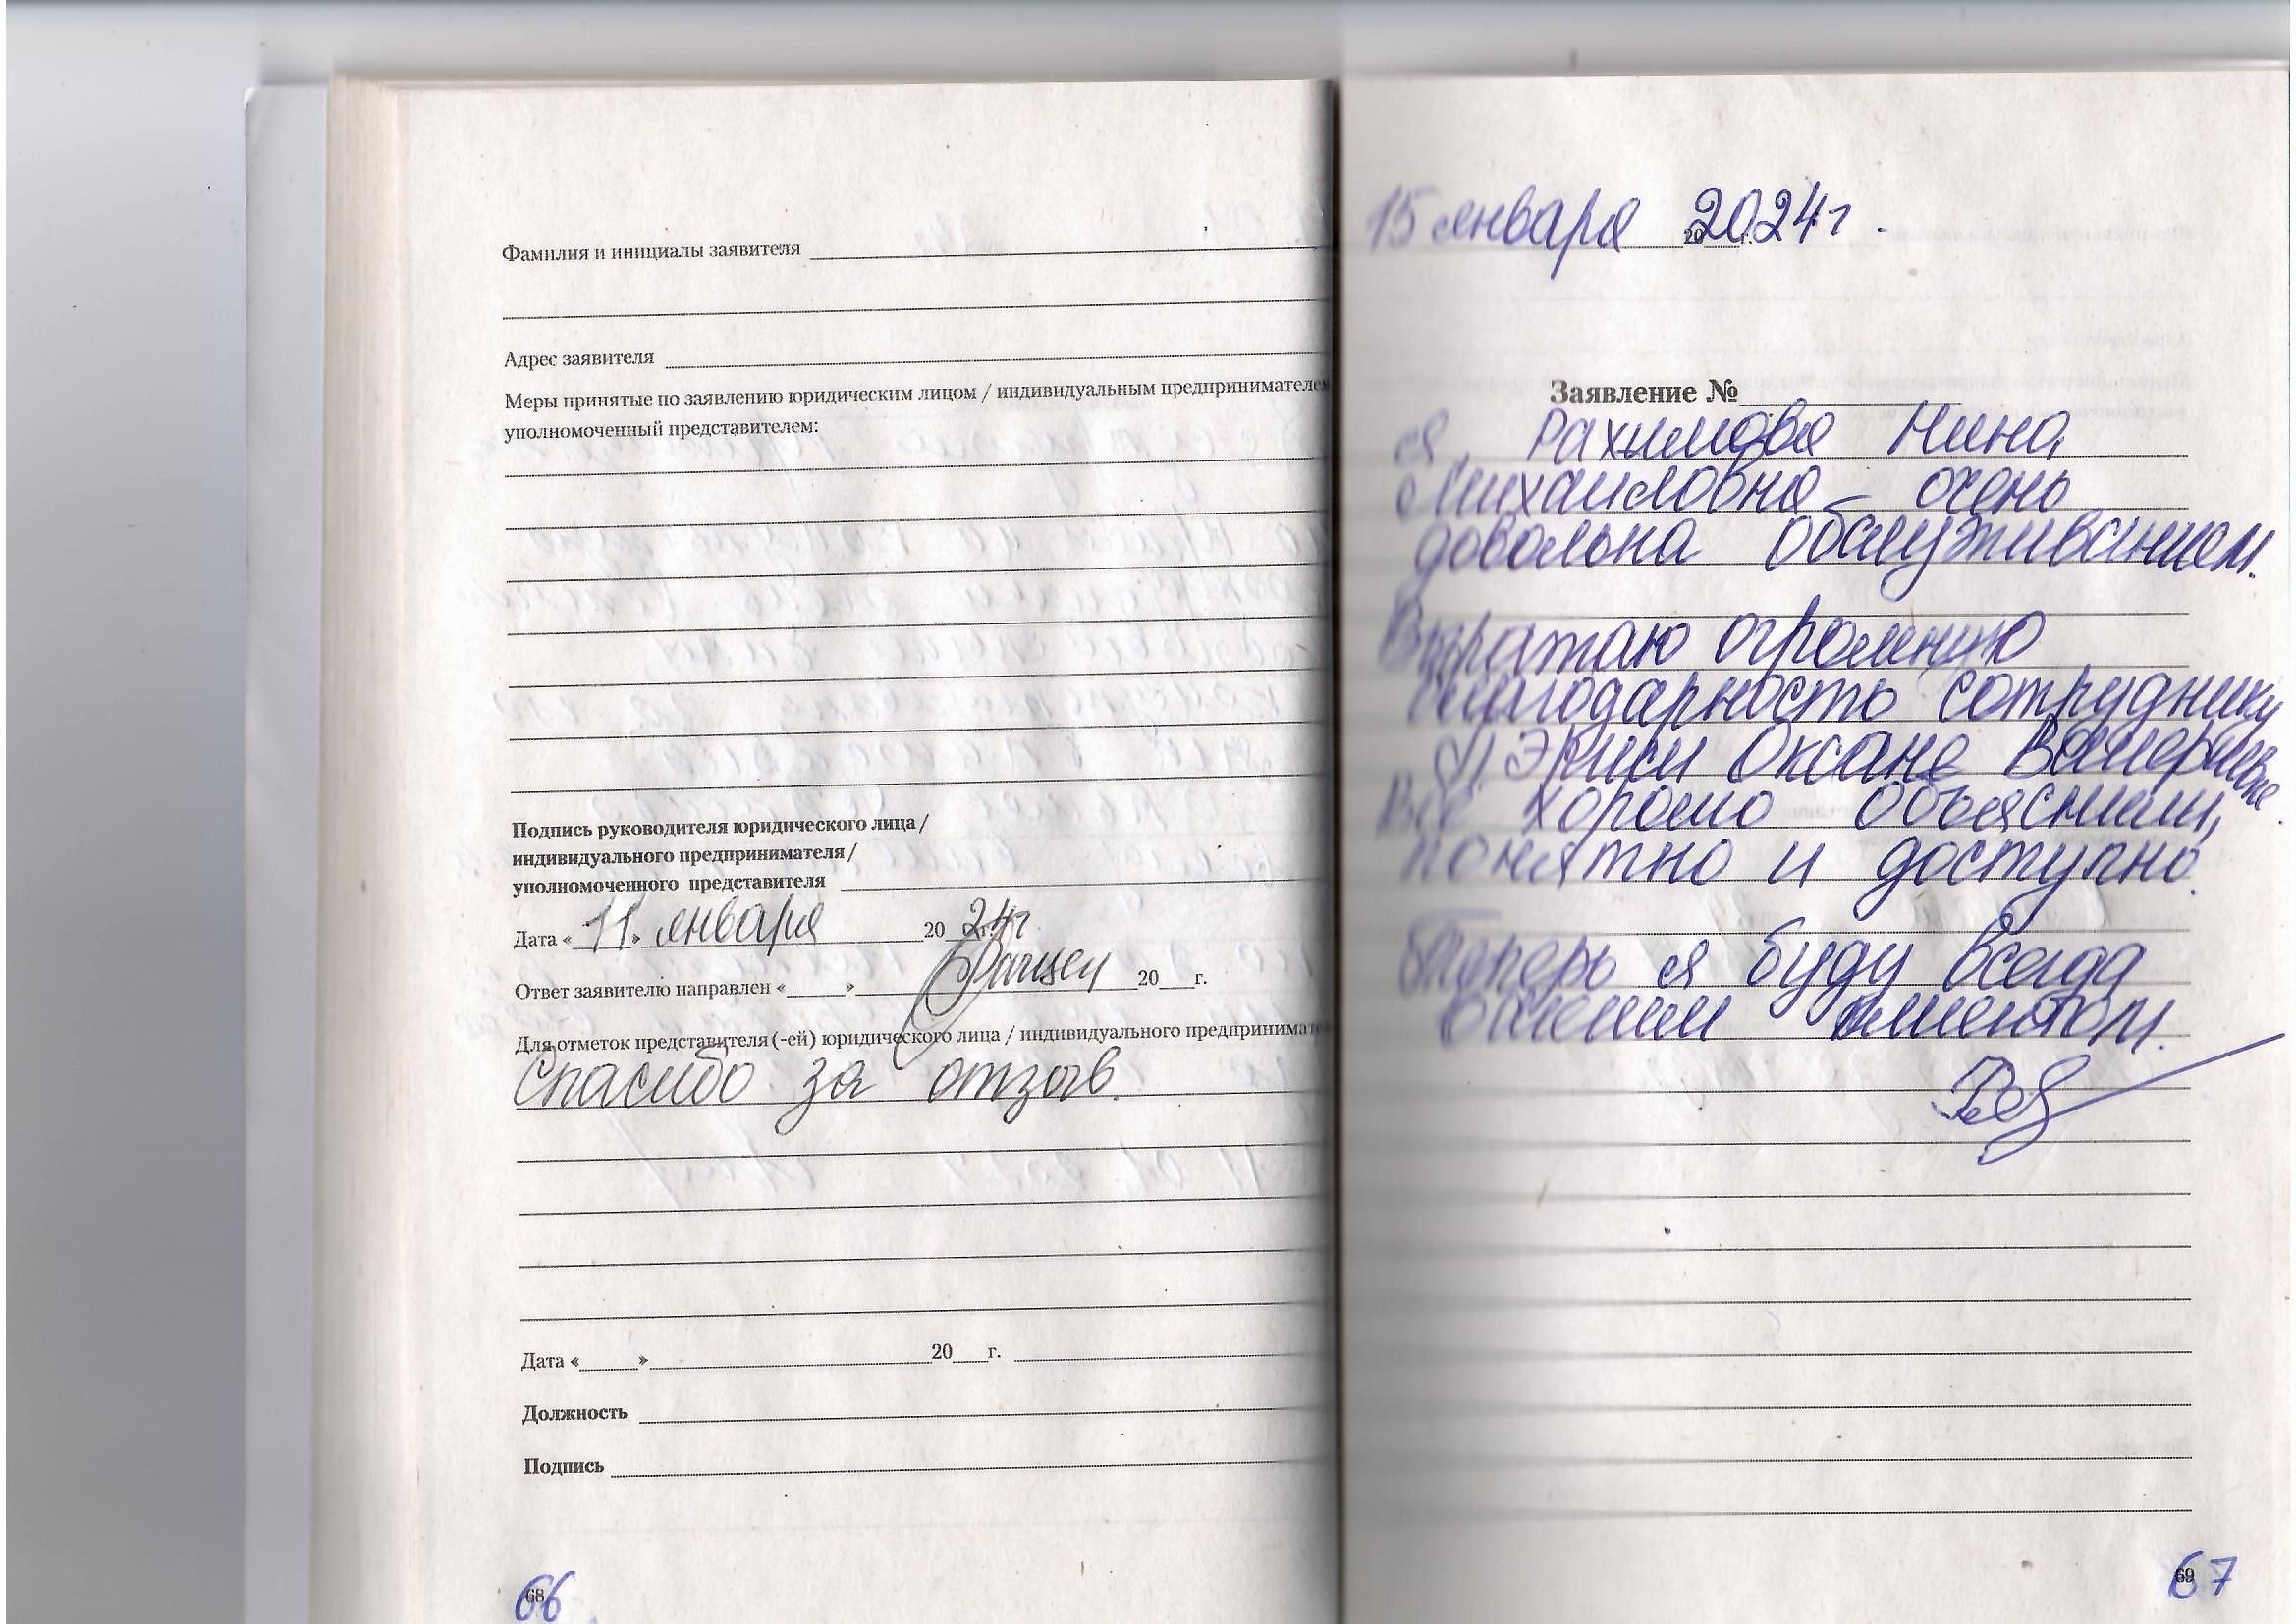 Фамилия и инициалы заявителя
Адрес заявителя
Меры принятые по заявлению юридическим лицом / индивидуальным предпринимателем
уполномоченный представителем:
Подпись руководителя юридического лица /
индивидуального предпринимателя /
уполномоченного представителя
Дата « 11 » января 20 24г.
Ответ заявителю направлен « » 20 г.
Для отметок представителя (-ей) юридического лица / индивидуального предпринимат
Спасибо за отзыв.
Дата « » 20 г.
Должность
Подпись
68
66
15 января 2024г.
20 г.
Заявление №
я, Рахимова Нина
Михайловна очень
довольна обслуживанием.
Выражаю огромную
благодарность сотруднику
Оксане Валериевне.
Все хорошо объяснили,
понятно и доступно.
Теперь я буду всегда
вашим клиентом.
69
67